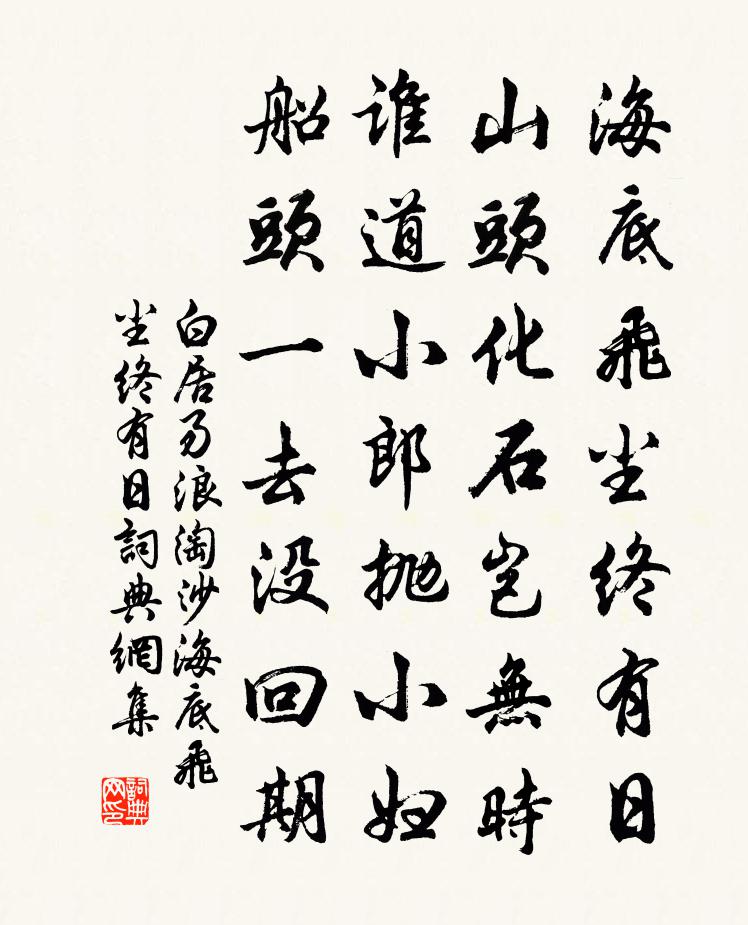 海底飛尘终有日
山頭化石岂無時
谁道小郎抛小妇
船頭一去没回期
白居易浪淘沙海底飛
尘终有日詞典網集
詞典
网印